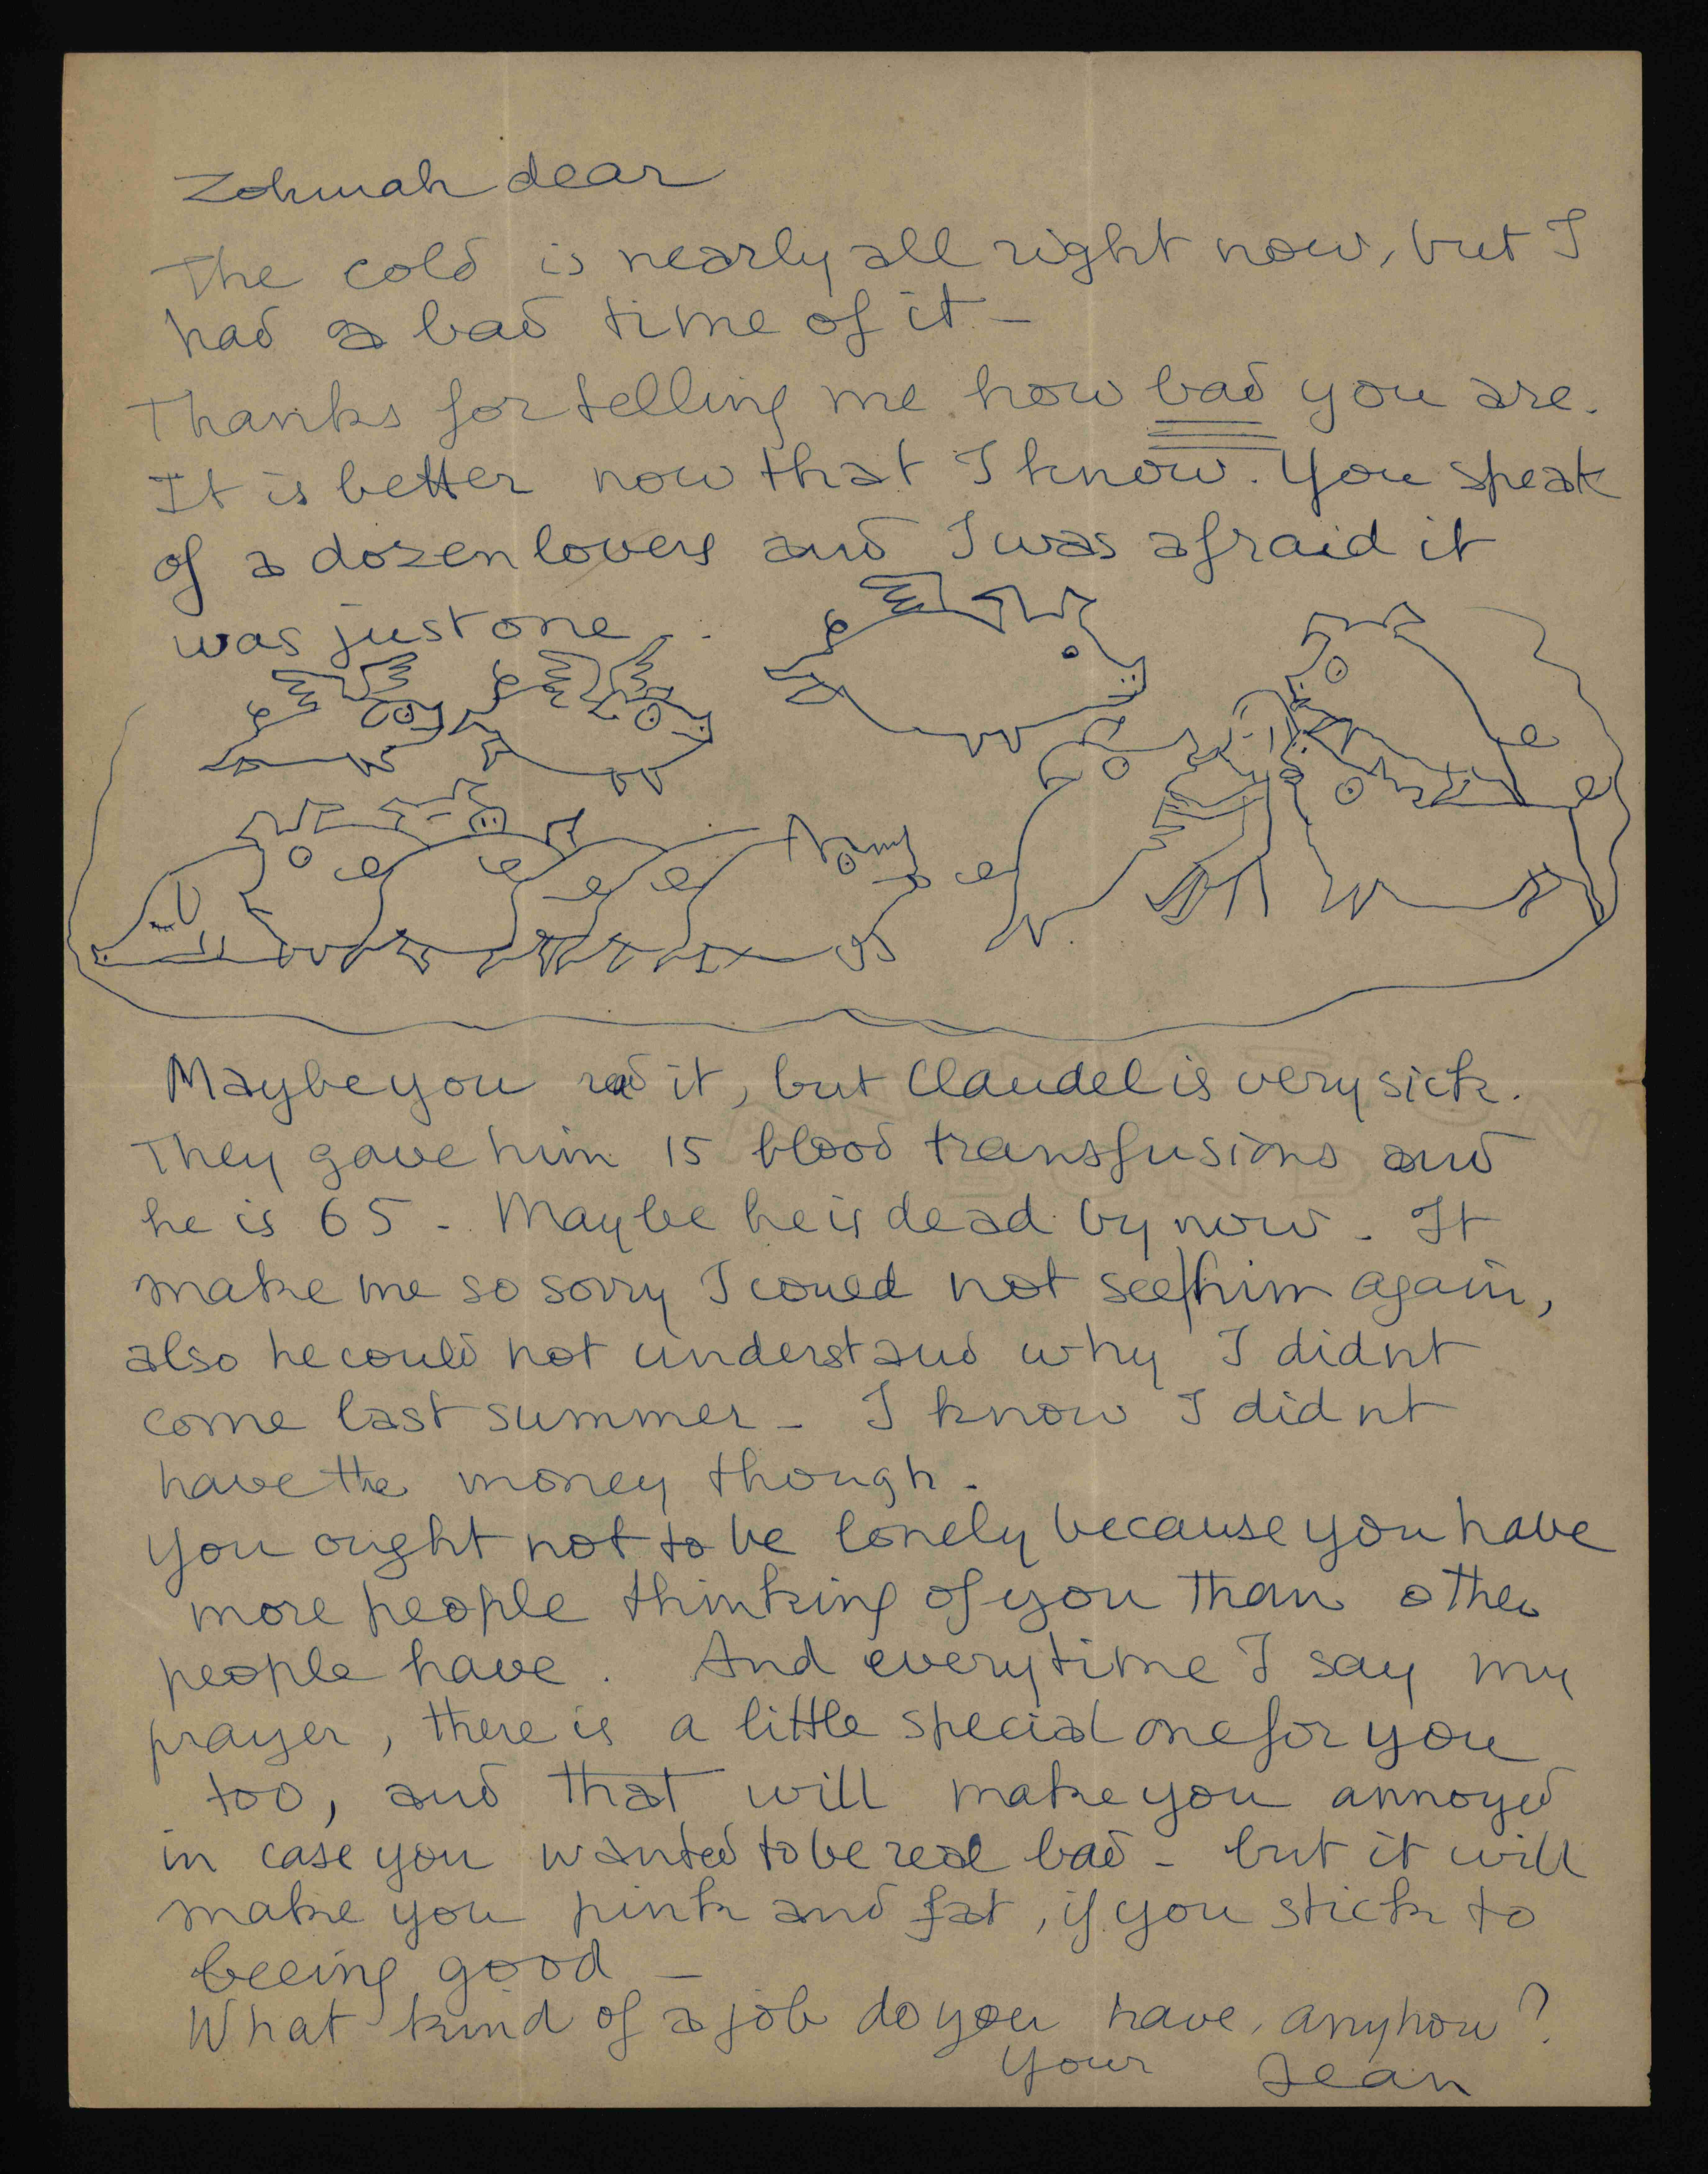 Zohmah dear
The cold is nearly all right now, but I
had a bad time of it –
Thanks for telling me how bad you are.
It is better now that I know. You speak
of a dozen lovers and I was afraid it
was just one . .
Maybe you read it, but Claudel is very sick.
They gave him 15 blood transfusions and
he is 65 – Maybe he is dead by now. It
make me so sorry I could not see him again,
also he could not understand why I didnt
come last summer – I know I didnt
have the money though.
You ought not to be lonely because you have
more people thinking of you than other
people have. And everytime I say my
prayer, there is a little special one for you
too, and that will make you annoyed
in case you wanted to be real bad – but it will
make you pink and fat, if you stick to
beeing good –
What kind of a job do you have, anyhow?
Your Jean